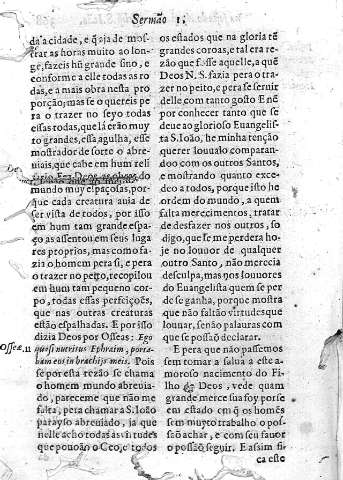 Sermão 1.
da a cidade, e q̃ aja de mos-
trar as horas muito ao lon-
ge, fazeis hũ grande sino, e
conforme a elle todas as ro-
das, e a mais obra nesta pro
porção; mas se o quereis pe-
ra o trazer no seyo todas
essas todas, que lá erão muy
to grandes, essa agulha, esse
mostrador de sorte o abre-
uiais, que cabe em hum reli
mundo muy espaçolas, por-
que cada creatura auia de
ser vista de todos, por isso
em hum tam grande espa-
ço as assentou em seus luga
res proprios, mas como fa-
zia o homem pera si, e pera
o trazer no peito, recopilou
em hum tam pequeno cor-
po, todas essas perfeições,
que nas outras creaturas
estão espalhadas. E por isso
dizia Deos por Oseas: Ego
Osseæ. 11
quasi nutritus Ephraim, porta-
bam eos in brachijs meis. Pois
se por esta rezão se chama
o homem mundo abreuia-
do, pareceme que não me
falta, pera chamar a S. Ioão
parayso abreuiado, ja que
nelle acho todas as virtudes
que pouoão o Ceo, e todos
os estados que na gloria tẽ
grandes coroas, e tal era re-
zão que fosse aquelle, a quẽ
Deos N. S. fazia pera o tra-
zer no peito, e pera se seruir
delle com tanto gosto E nẽ
por conhecer tanto que se
deue ao glorioso Euangelis
ta S. Ioão, he minha tenção
querer louualo comparan-
doo com os outros Santos,
e mostrando quanto exce-
deo a todos, porque isto he
ordem do mundo, a quem
falta merecimentos, tratar
de desfazer nos outros, so
digo, que se me perdera ho-
je no louuor de qualquer
outro Santo, não merecia
desculpa, mas nos louuores
do Euangelista quem se per
de se ganha, porque mostra
que não faltão virtudes que
louuar, senão palauras com
que se possaõ declarar.
E pera que não passemos
sem tornar a salua a este a-
moroso nacimento do Fi-
lho de Deos, vede quam
grande merce sua foy porse
em estado em q̃ os homẽs
sem muyto trabalho o pos-
saõ achar, e com seu fauor
o possaõ seguir. E assim fi
ca este